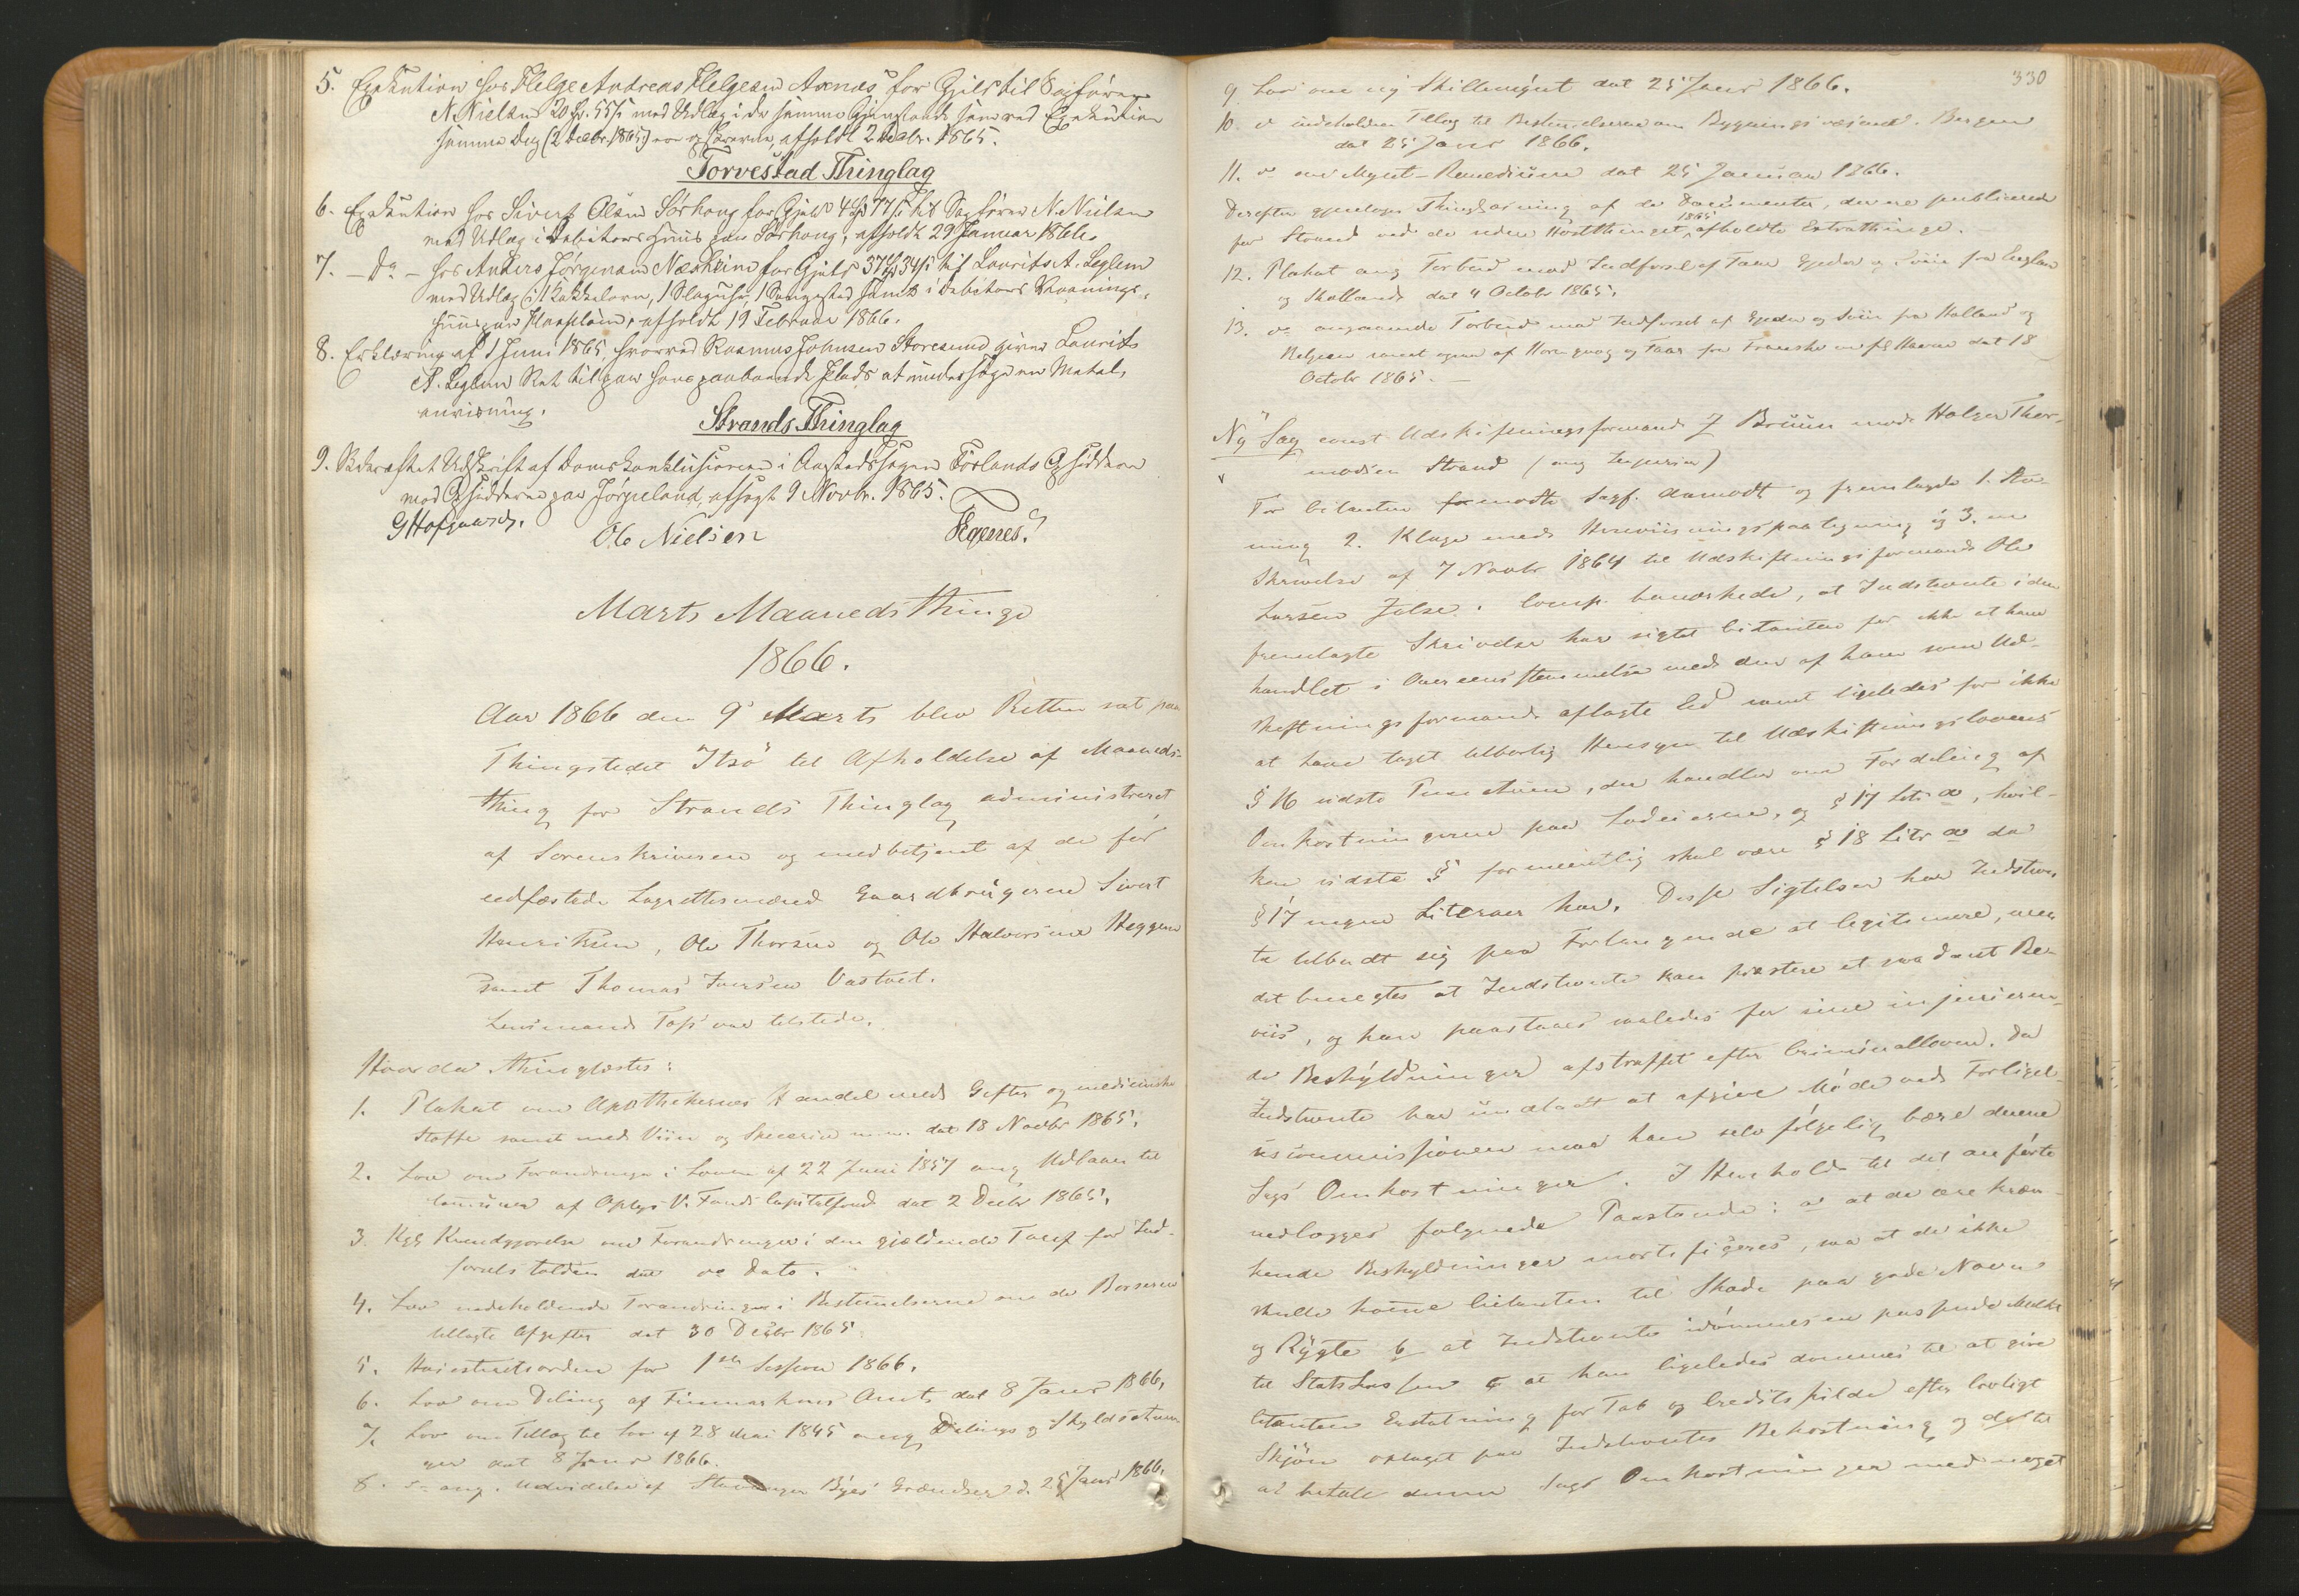 5. Exekution hos Helge Andreas Helgesen Aanæs for Gjeld til Sagfører
N. Nielsen 20 Spd. 55 ß med Udlæg i de samme Gjenstande som ved Exekution
samme Dag (2 Decbr. 1865) afholdt 2 Decbr. 1865.
Torvestad Thinglag
6. Exekution hos Sivert Olsen Sørhoug for Gjeld 4 Spd 77 ß til Sagfører N. Nielsen
med Udlæg i Debitors Huus paa Sørhoug, afholdt 29 Januar 1866.
7. – Do – hos Anders Jørgensen Næsheim for Gjeld 37 Spd 34 ß til Laurits A. Leglem
med Udlæg i 1 Kakkelovn, 1 Slaguhr, 1 Sengested samt i Debitors Vaanings-
huus paa afholdt 19 Februar 1866.
8. Erklæring af 1 Juni 1865, hvorved Rasmus Johnsen Storesund giver Laurits
A. Leglem Ret til paa hans Plads at undersøge en Metal-
anvisning.
Strands Thinglag
9. Bekræftet Udskrift af Domskonklusionen i Aastedssagen Førlands Opsiddere
mod Opsidderne paa Jørpeland, afsagt 9 Novbr. 1865.
G Hofgaard. Ole Nielsen Fegenes.
Marts Maanedsthing
1866.
Aar 1866 den 9 Marts blev Retten sat paa
Thingstedet Itsö til Afholdelse af Maaneds-
thing for Strands Thinglag administreret
af Sorenskriveren og medbetjent af de før
eedfæstede Laugrettesmænd Gaardbrugerne Sivert
Henriksen, Ole Thorsen og Ole Halvorsen Heggem
samt Thomas Iversen Vastveit.
Lensmand Tofs var tilstede.
Hvorda thinglæstes:
1. Plakat om Apothekernes Handel med Gifter og medicinske
Stoffe samt med Viin og m.m. dat 18 Novbr 1865.
2. Lov om Forandringer i Loven af 22 Juni 1857 ang. Udlaan til
Communer af Oplys V. Fonds Capitalfond dat 2 Decbr 1865.
3. Kgl. Kundgjørelse om Forandringer i den gjældende Tarif for Ind-
førselstolden dat do Dato.
4. Lov indeholdende Forandringer i Bestemmelserne om de
tillagte Afgifter dat 30 Decbr 1865.
5. Høiesteretsorden for 1ste Session 1866.
6. Lov om Deling af Finmarkens Amt dat 8 Janr 1866.
7. Lov om Tillæg til Lov af 28 Mai 1845 ang. Delings og Skyldsætnin-
ger dat 8 Janr 1866.
8. do ang. Udvidelse af Stavanger Byes Grændser d. 25 Janr 1866.
330
9 Lov om ny Skillemynt dat 25 Janr 1866.
10. do indeholden Tillæg til Bestemmelserne om Bygningsvæsenet i Bergen
dat 25 Janr 1866.
11. do om Mynt-Remedium dat 25 Januar 1866.
Derefter gjentoges Thinglæsning af de Documenter, der ere publicerede
for Strand ved de siden Høstthinget 1865 afholdte Extrathinge.
12. Plakat ang Forbud mod Indførsel af Faar Gjeder og Sviin fra England
og Skotland dat 4 Octobr 1865.
13. do angaaende Forbud mod Indførsel af Gjeder og Sviin fra Holland og
Belgien samt ogsaa af Hornqvæg og Faar fra Franske Havne dat 18
Octobr 1865. –
Ny Sag const. Udskiftningsformand J Bruun mod Holger Thor-
modsen Strand (ang Injurier)
For Citanten mødte Sagf. Aamodt og fremlagde 1. Stæ-
ning 2. Klage med Henviisningspaategning og 3. en
Skrivelse af 7 Novbr 1864 til Udskiftningsformand Ole
Larsen Jølse. Comp. bemærkede, at Indstevnte i den
fremlagte Skrivelse har sigtet Citanten for ikke at have
handlet i Overeensstemmelse med den af ham som Ud-
skiftningsformand aflagte Eed samt ligeledes for ikke
at have taget tilbørlig Hensyn til Udskiftningslovens
§ 16 sidste Punctum, der handler om Fordeling af
Omkostningerne paa Lodeierne, og § 17 Litr a, hvil-
ken sidste § formeentlig skal være § 18 Litr a da
§ 17 ingen Literaer har. Disse Sigtelser har Indstevn-
te tilbudt sig paa Forlangende at legitimere, men
det benegtes at Indstevnte kan præstere et saadant Be-
viis, og han paastaaes saaledes for sine injurieren-
de Beskyldninger afstraffet efter Criminalloven. Da
Indstevnte har undladt at afgive Møde ved Forligel-
sescommissionen maa han selv følgelig bære denne
Sags Omkostninger. I Henhold til det anførte
nedlægges følgende Paastande: a at de ærekræn-
kende Beskyldninger mortificeres, saa at de ikke
skulle komme Citanten til Skade paa gode Navn
og Rygte b at Indstevnte idømmes en passende Mulkt
til Statskassen c at han ligeledes dømmes til at give
Citanten Erstatning for Tab og Creditspilde efter lovligt
Skjøn optaget paa Indstevntes Bekostning og d til
at betale denne Sags Omkostninger med noget